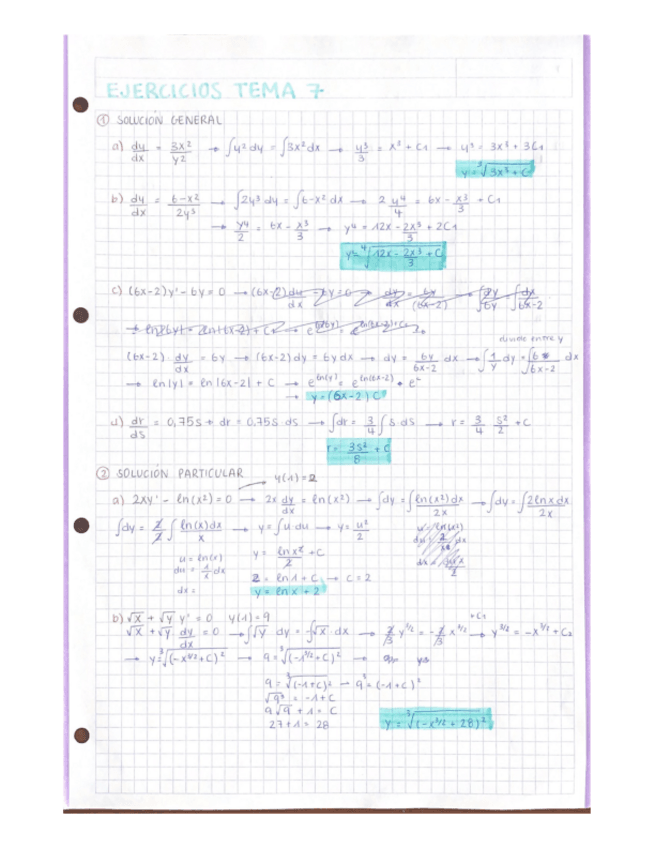 EJERCICIOS TEMA 7
① SOLUCIÓN GENERAL
a) dy/dx = 3x²/y² → ∫y² dy = ∫3x² dx → y³/3 = x³ + C1 → y³ = 3x³ + 3C1
y = ³√(3x³ + C)
b) dy/dx = (6-x²)/2y³ → ∫2y³ dy = ∫6-x² dx → 2 y⁴/4 = 6x - x³/3 + C1
→ y⁴/2 = 6x - x³/3 → y⁴ = 12x - 2x³/3 + 2C1
y = ⁴√(12x - 2x³/3 + C)
c) (6x-2)y' - 6y = 0 → (6x-2) dy/dx - 6y = 0 → dy/dx = 6y/(6x-2) ∫dy/6y ∫dx/6x-2
divide entre y
(6x-2) dy/dx = 6y → (6x-2) dy = 6y dx → dy = 6y/6x-2 dx → ∫1/y dy = ∫6/6x-2 dx
→ ln|y| = ln|6x-2| + C → e^ln(y) = e^ln(6x-2) • e^c
→ y = (6x-2) C
d) dr/ds = 0,75s → dr = 0,75s ds → ∫dr = 3/4 ∫s ds → r = 3/4 s²/2 + C
r = 3s²/8 + C
② SOLUCIÓN PARTICULAR
y(1) = 2
a) 2xy' - ln(x²) = 0 → 2x dy/dx = ln(x²) → ∫dy = ∫ln(x²)dx/2x → ∫dy = ∫2lnx dx/2x
∫dy = 2/2 ∫ln(x)dx/x → y = ∫u du → y = u²/2
u = ln(x²)
u = ln(x)
du = 1/x dx
dx =
y = lnx²/2 + C
2 = ln1 + C → C = 2
y = ln x + 2
b) √x + √y y' = 0 y(1) = 9
+C1
√x + √y dy/dx = 0 → ∫√y dy = -∫√x dx → 2/3 y^3/2 = -2/3 x^3/2 → y^3/2 = -x^3/2 + C2
→ y = ³√(-x^3/2 + C)² → 9 = ³√(-1^3/2 + C)² →
9 = ³√(-1+C)² → 9³ = (-1+C)²
√9³ = -1+C
9√9 + 1 = C
27+1 = 28
y = ³√(-x^3/2 + 28)²